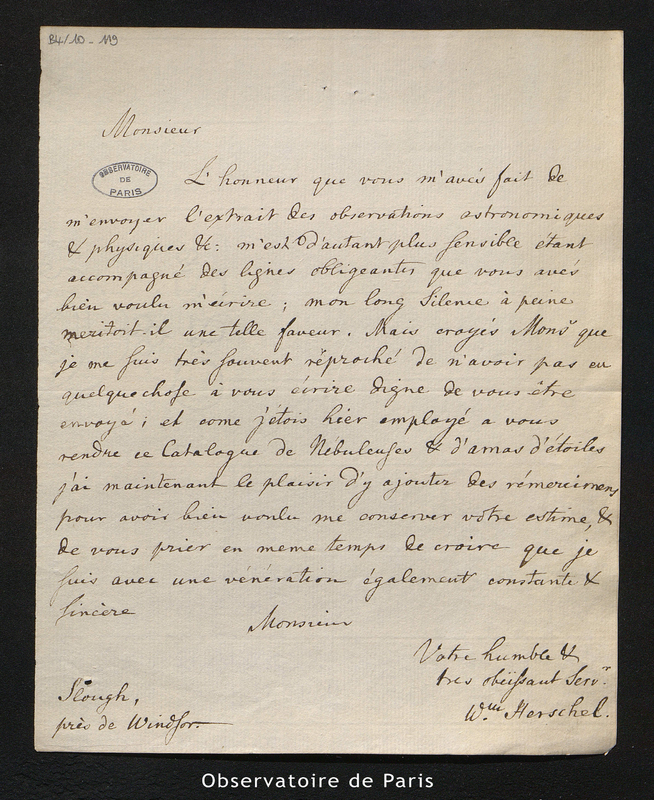 B4/10-119
Monsieur
OBSERVATOIRE
DE
PARIS
L'honneur que vous m'avés fait de
m'envoyer l'extrait des observations astronomiques
& physiques &c: m'est d'autant plus sensible étant
accompagné des lignes obligeantes que vous avés
bien voulu m'écrire; mon long Silence à peine
meritoit-il une telle faveur. Mais croyés Monsr que
je me suis très souvent réproché de n'avoir pas eu
quelquechose à vous écrire digne de vous être
envoyá; et come j'étois hier employé a vous
rendre ce Catalogue de Nebuleuses & d'amas d'étoiles
j'ai maintenant le plaisir d'y ajouter des rémercimens
pour avoir bien voulu me conserver vôtre estime, &
de vous prier en meme temps de croire que je
suis avec une vénération également constante &
sincère
Monsieur
Votre humble &
tres obëissant Servr.
Wm Herschel.
Slough,
près de Windsor.
Observatoire de Paris